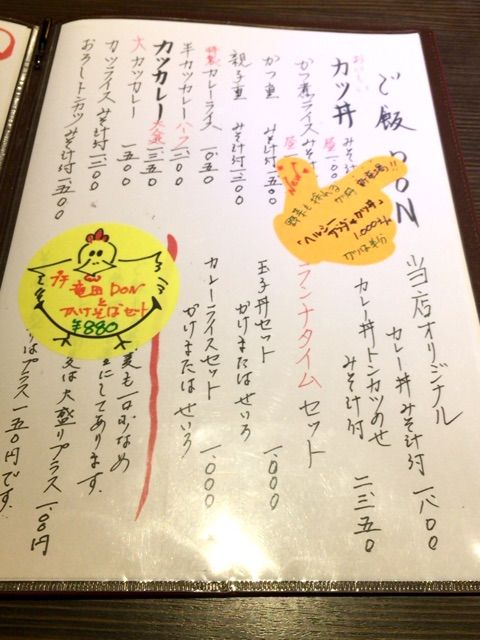 ご飯 DON
おいしい
カツ丼 みそ汁
かつ煮ライスみそ
かつ重 みそ汁付 一、五〇〇
親子重 みそ汁付 一、三〇〇
特製 カレーライス 一、〇五〇
半カツカレー ハーフ 一、二〇〇
カツカレー 大盛 一、三五〇
大カツカレー 一、五〇〇
カツライス みそ汁付 一、三〇〇
おろしトンカツ みそ汁付 一、五〇〇
野菜も採れるカツ丼 新登場!!
「ヘルシーアボカツ丼」
1,000yen
カツは半分
当店オリジナル
カレー丼 みそ汁付 一、八〇〇
カレー丼トンカツのせ
みそ汁付 二、三五〇
ランチタイムセット
玉子丼セット
かけまたはせいろ 一、〇〇〇
カレーライスセット
かけまたはせいろ 一、〇〇〇
プチ
竜田DON
と
かけそばセット
¥880
にしてあります。
又は大盛りプラス一〇〇円
はプラス一五〇円です。